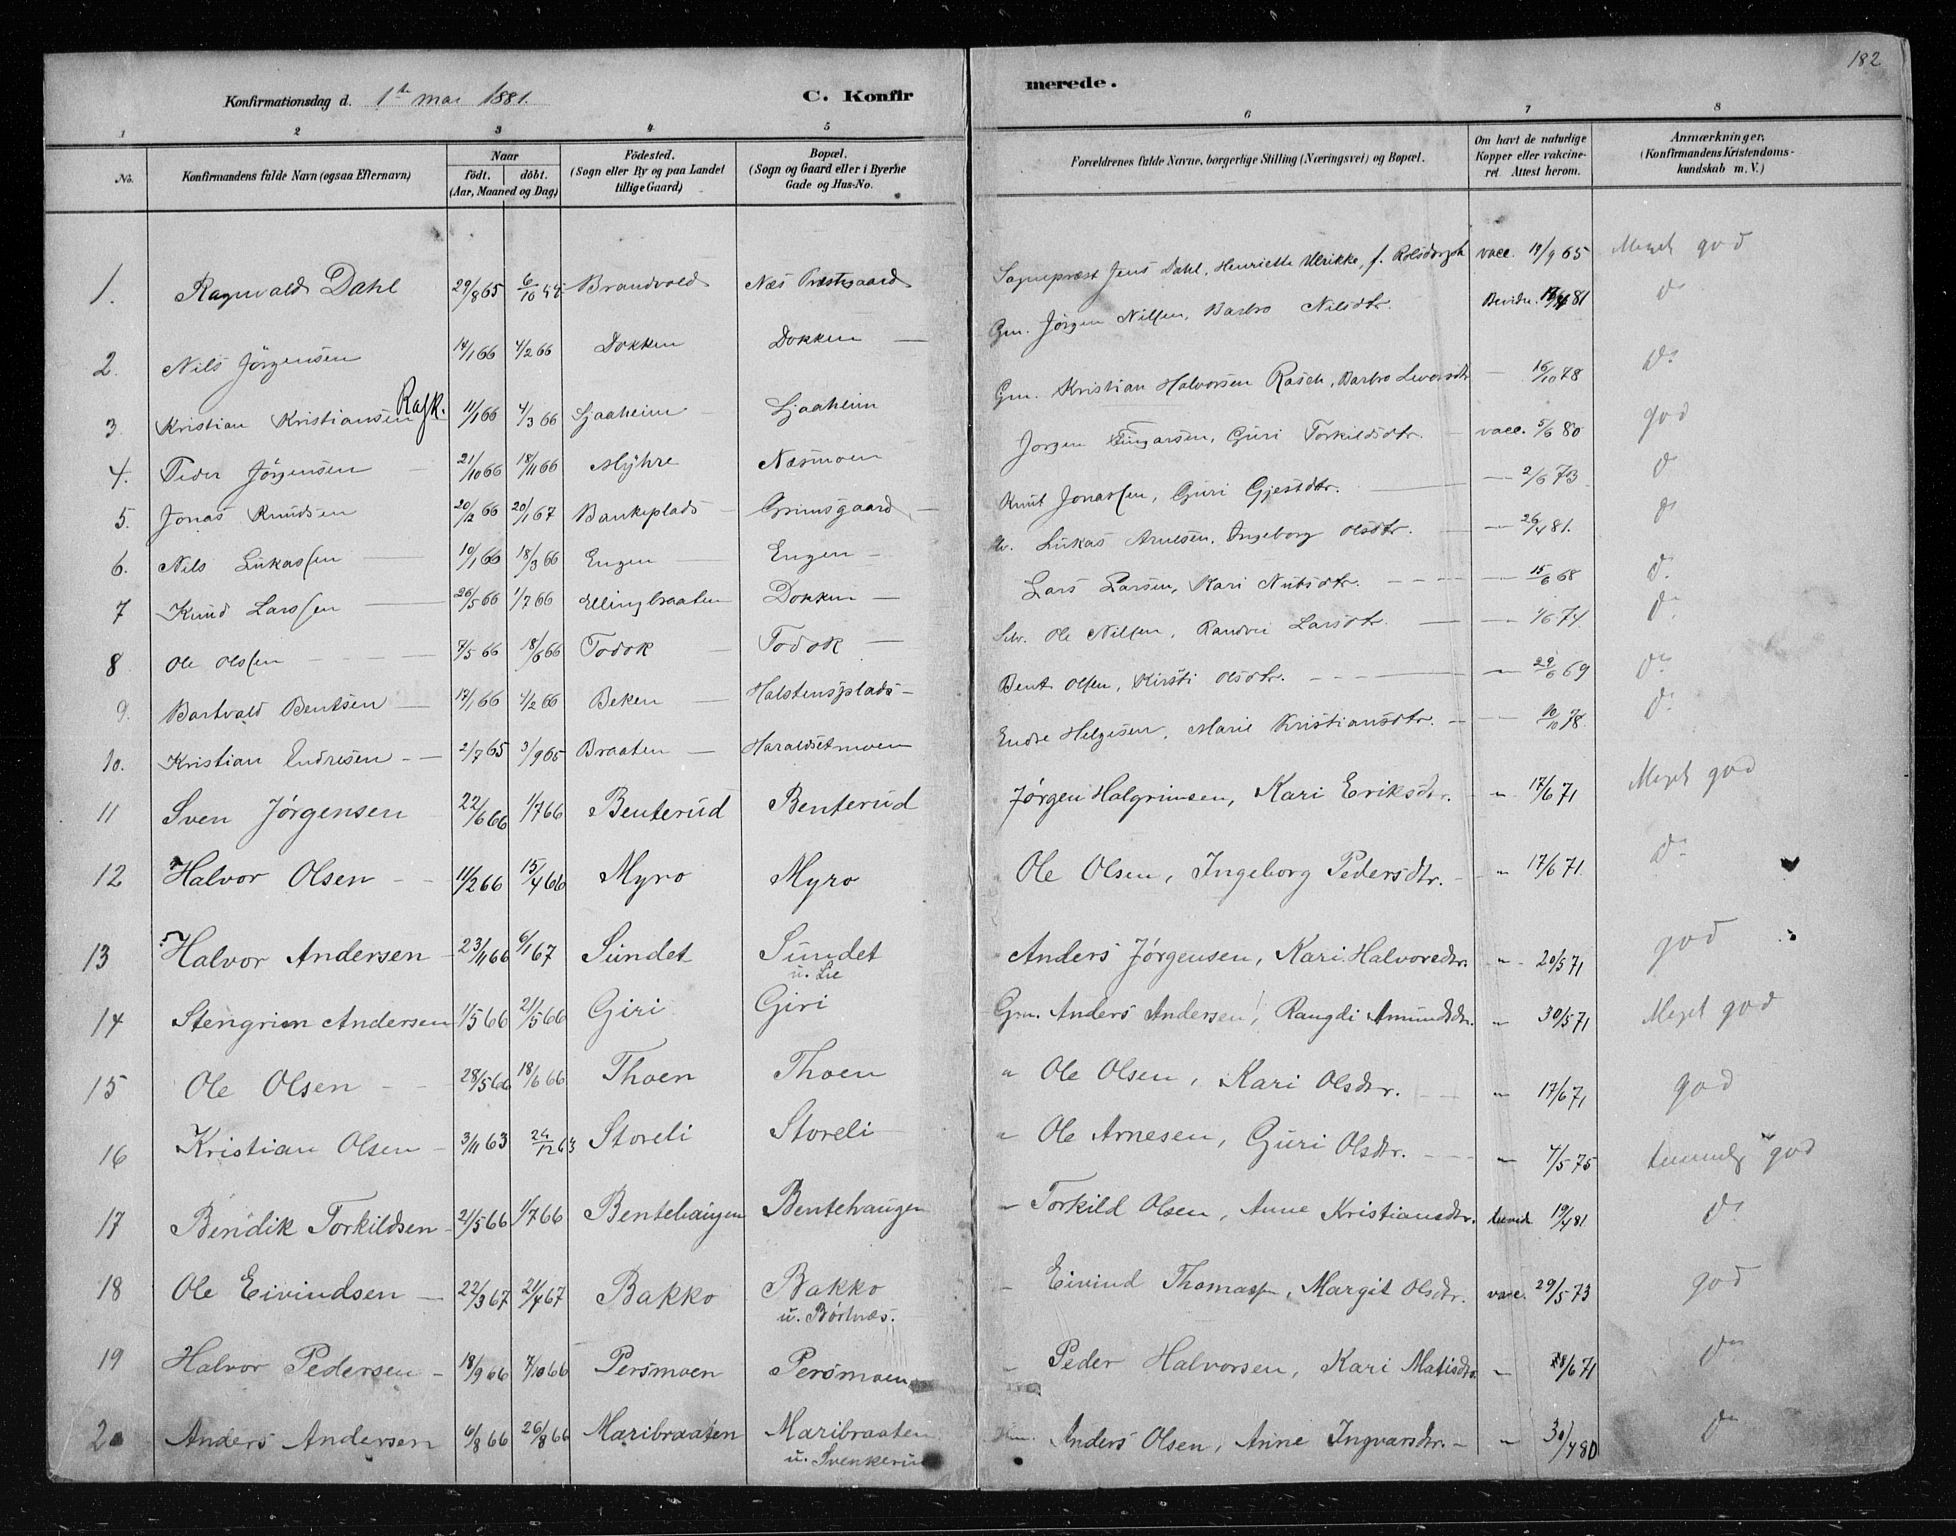 182
Konfirmationsdag d. 1ste mai 1881. C. Konfir merede.
1 2 3 4 5 6 7 8
No. Konfirmandens fulde Navn (ogsaa Efternavn) Naar födt. döbt. (Aar, Maaned og Dag) Födested. (Sogn eller By og paa Landet tillige Gaard) Bopæl. (Sogn og Gaard eller i Byerne Gade og Hus-No. Forældrenes fulde Navne, borgerlige Stilling (Næringsvei) og Bopæl. Om havt de naturlige Kopper eller vakcineret. Attest herom. Anmærkninger. (Konfirmandens Kristendomskundskab m. V.)
1. Ragnvald Dahl 29/8 65 6/10 Brandvold Næs Præstegaard Sognepræst Jens Dahl, Henriette Ulrikke, f. vacc. 19/9 65 Meget god
2. Nils Jörgensen 14/1 66 4/2 66 Dokken Dokken Gm. Jörgen Nilsen, Barbro Nilsdtr. 81 do
3. Kristian Kristiansen Rask. 11/1 66 4/3 66 Sjaaheim Sjaaheim Gm. Kristian Halvorsen Rasch, Barbro Leversdtr 16/10 78 do
4. Peder Jörgensen 21/10 66 18/11 66 Myhre Næsmoen Jörgen Guri Torkildsdtr. vacc. 5/6 80 god
5. Jonas Knudsen 20/12 66 20/1 67 Bankeplads Grimsgaard Knut Jonassen, Guri Gjestdtr. 2/6 73 do
6. Nils Lukassen 10/1 66 18/3 66 Engen Engen Lukas Arnesen, Ingeborg Olsdtr. 26/4 81. do
7 Knud Larssen 26/5 66 1/7 66 Ellingbraaten Dokken Lars Larsen, Kari Nubsdtr. 15/6 68 do
8 Ole Olssen 7/5 66 18/6 66 Todok Todok Selv. Ole Nilsen, Randvei Larsdtr. 1/6 74. do
9. Bartvald Bentsen 17/1 66 4/2 66 Beken Halstensplads Bent Olsen, Kirsti Olsdtr. 29/6 69 do
10. Kristian Endresen 2/7 65 3/9 65 Braaten Haraldsetmoen Endre Helgesen, Marie Kristiansdtr. 10/10 78. do
11 Sven Jørgensen 22/6 66 1/7 66 Benterud Benterud Jørgen Halgrimsen, Kari Eriksdtr. " 17/6 71 Meget god
12 Halvor Olsen 11/2 66 15/4 66 Myro Myro Ole Olsen, Ingeborg Pedersdtr. " 17/6 71. do
13 Halvor Andersen 23/11 66 6/1 67 Sundet Sundet u. Lie Anders Jørgensen, Kari Halvorsdtr. " 20/5 71 god
14 Stengrim Andersen 1/5 66 21/5 66 Giri Giri Gm. Anders Andersen, Rangdi Amundsdtr. " 30/5 71 Meget god
15 Ole Olsen 28/5 66 18/6 66 Thoen Thoen " Ole Olsen, Kari Olsdtr. " 17/6 71 god
16 Kristian Olsen 3/11 63 26/12 63 Storeli Storeli " Ole Arnesen, Guri Olsdtr. " 4/5 75 temmelig god
17 Bendik Torkildsen 21/5 66 1/7 66 Bentehaugen Bentehaugen " Torkild Olsen, Anne Kristiansdtr. 19/4 81 do
18 Ole Eivindsen 22/3 67 21/4 67 Bakko Bakko u. Børtnæs. " Eivind Thomass, Margit Olsdtr. vacc. 29/5 73 god
19 Halvor Pedersen 18/9 66 7/10 66 Persmoen Persmoen " Peder Halvorsen, Kari Matisdtr. " 18/6 71 do
20 Anders Andersen 6/8 66 26/8 66 Maribraaten Maribraaten u. Svenkerud Anders Olsen, Anne Ingvarsdtr. " 30/4 80 do